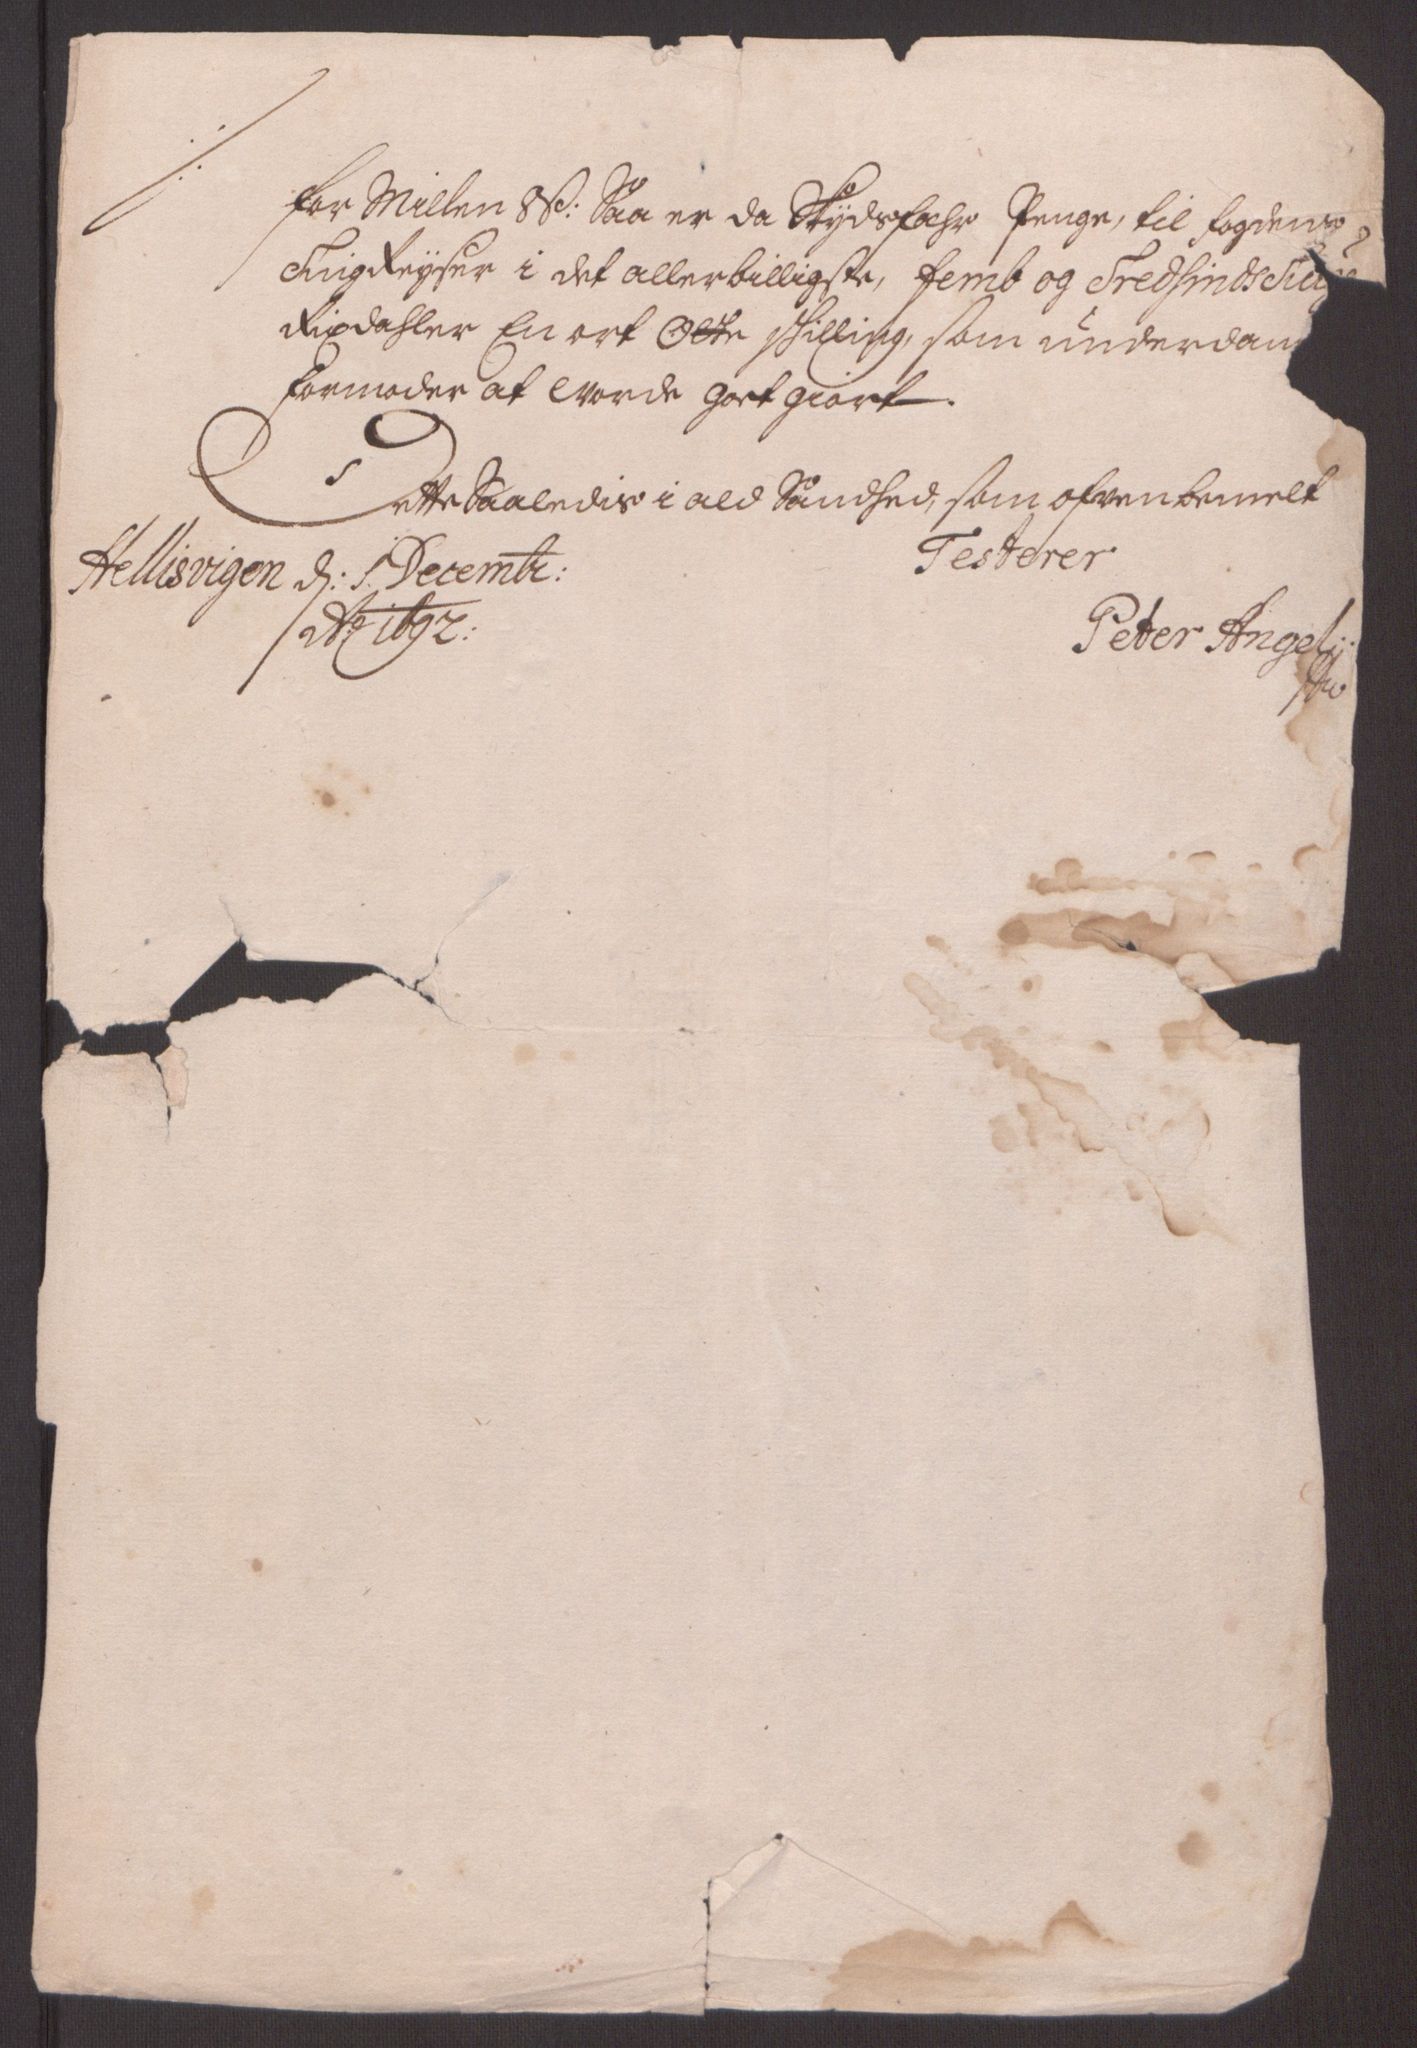 for Millen 8 s: Saa er da Skydsfahr Penge, til fogdens
Tingreyser i det allerbilligste, femb og Tredsindstiuge
Rixdahler En ort Otte skilling, som underdan
formoder at worde goet giort.
Dette Saaledis i ald Sandhed, som ofvenbemelt
Testerer
Hellisvigen d: 1 Decembr:
Ao 1692:
Peter Angel